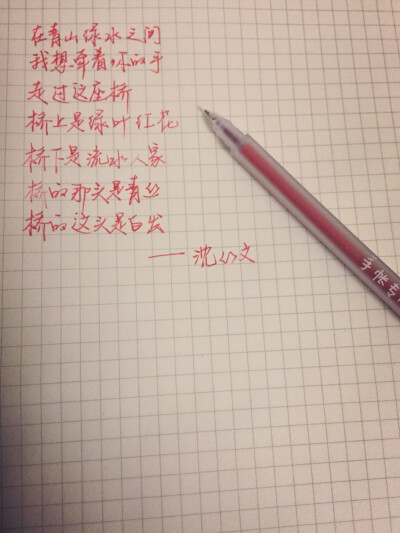 在青山绿水之间
我想牵着你的手
走过这座桥
桥上是绿叶红花
桥下是流水人家
桥的那头是青丝
桥的这头是白发
—— 沈从文
手帐专